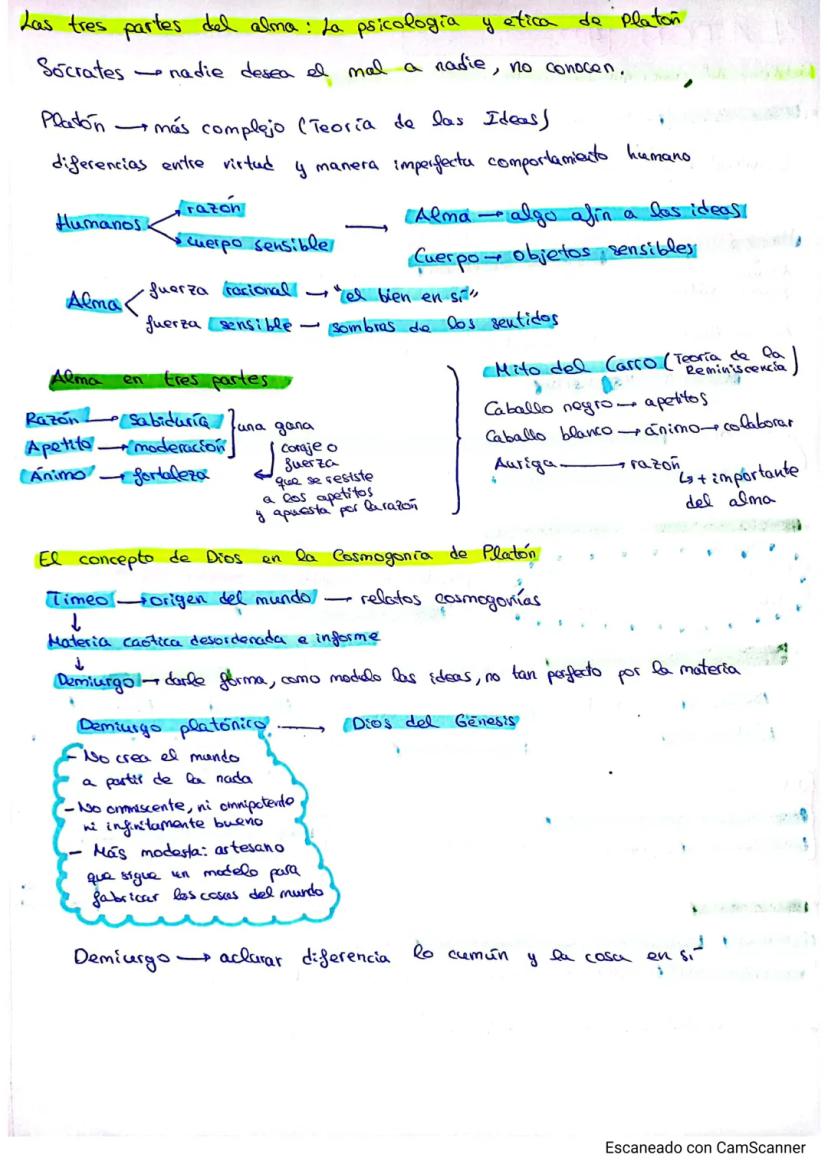 Las tres partes del alma: La psicología y etica de Platón
Sócrates → nadie desea el mal a nadie, no conocen.
Platón → más complejo (Teoría de las Ideas)
diferencias entre virtud y manera imperfecta comportamiento humano
Humanos
razón
cuerpo sensible
→
Alma → algo afín a las ideas
Cuerpo → objetos sensibles
Alma
fuerza racional → "el bien en sí"
fuerza sensible → sombras de los sentidos
Alma en tres partes
Razón → sabiduría
Apetito → moderación
Ánimo → fortaleza
una gana
coraje o
fuerza
que se resiste
a los apetitos
y apuesta por la razón
Mito del Carro (Teoría de la
Reminiscencia)
Caballo negro → apetitos
Caballo blanco → ánimo → colaborar
Auriga → razón
↳ + importante
del alma
El concepto de Dios en la Cosmogonía de Platón
Timeo → origen del mundo → relatos cosmogonías
↓
Materia caótica desordenada e informe
↓
Demiurgo → darle forma, como modelo las ideas, no tan perfecto por la materia
Demiurgo platónico → Dios del Génesis
- No crea el mundo
a partir de la nada
- No omniscente, ni omnipotente
ni infinitamente bueno
- Más modesta: artesano
que sigue un modelo para
fabricar las cosas del mundo
Demiurgo → aclarar diferencia lo común y la cosa en sí
Escaneado con CamScanner